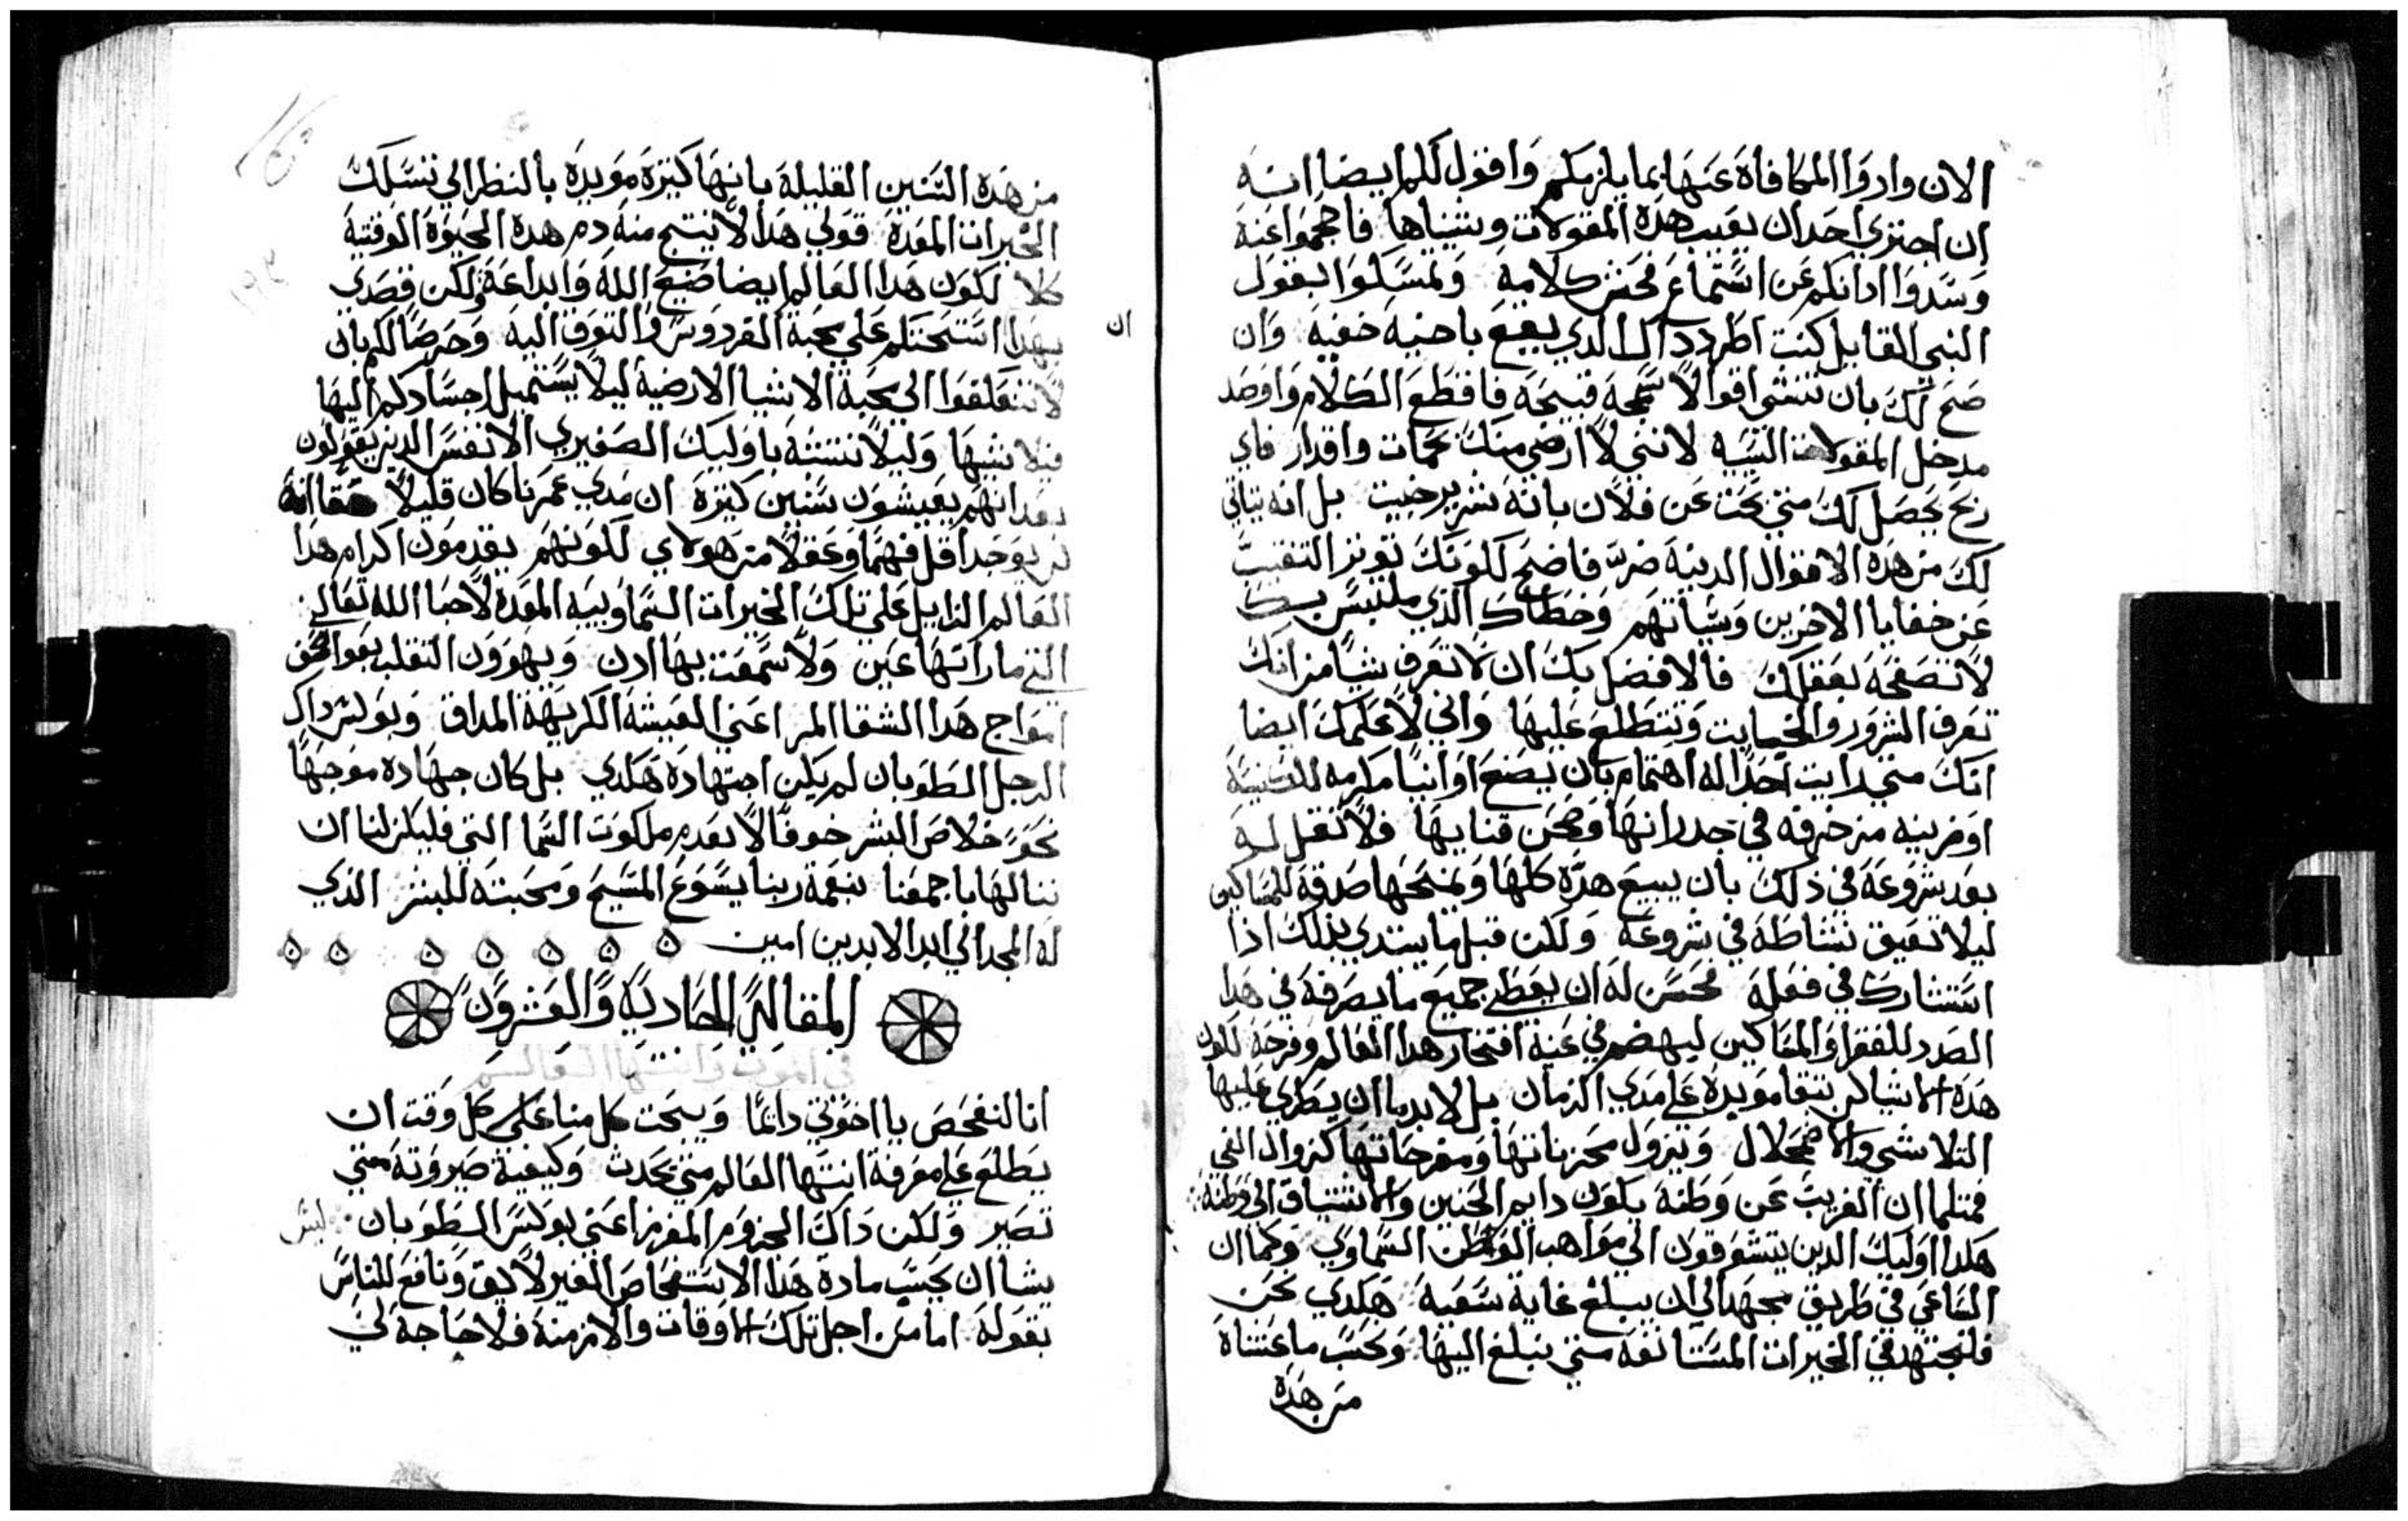 الان وادوا المكافاة عنها بما يلزمكم واقول لكم ايضا انه
ان اجترى احد ان يعيب هذه المقولات وينيناها فاجمموا عنه
وسدوا ادانكم عن استماع فحش كلامه وتمسكوا بقول
النبي القايل كنت اطرد داك الدي يقع باخيه خفية وان
صح لك بان تنشي اقوالا سمجة قبيحة فاقطع الكلام واوصد
مدخل المقولات السيه لانني لا ارضى منك حمات واقدار فاي
ربح يحصل لك متى بحت عن فلان بانه شرير خبيت بل انه يتاتي
لك من هده الاقوال الدينة ضرر فاضح لكونك توتر التفتيت
عن خفايا الاخرين وسياتهم وخطاك الذي ملتبس بك
لا تصفحه بعقلك فالافضل بك ان لا تعرف شيا من انك
تعرف الشرور والخبايت وتتطلع عليها واني لاعلمك ايضا
انك متي رايت احدا له اهتمام بان يصنع اوانيا مكرمه للكنيسة
او مزينه مزخرفه في جدرانها وصحن قنايها فلا تقل له
بعد شروعه في ذلك بان يبيع هذه كلها ويمنحها صدقة للمساكين
ليلا تعيق نشاطه في شروعه ولكن قبل ما يبتدي بذلك اذا
استشارك في فعله فحسن له ان يعطي جميع ما يصرفه في هدا
الصدد للفقرا والمساكين ليهضم في عنه افتخار هدا العالم وفرحه لكون
هده الاشيا لن تبقا مويدة على مدي الزمان بل لابد ما ان يطري عليها
التلاشي والاضمحلال ويزول محزناتها ومفرحاتها كزوال الفي
فمتلما ان الغريب عن وطنه يكون دايم الحنين والاشتياق الى وطنه
هكدا اوليك الدين يتشوقون الى مواهب الوطن السماوي وكما ان
الساعي في طريق مجهد الى ان يبلغ غاية سعيه هكدي نحن
فلنجتهد في الخيرات المستانفه متي نبلغ اليها وبحسب ما عشناه
من هده
من هده السنين القليلة بانها كتيرة مويدة بالنظر الى تنسكك
الخيرات المعدة قولي هدا لا ينتج منه دم هده الحيوة الوقتية
كلا لكون هدا العالم ايضا صنيع الله وابداعه ولكن قصدي
ان
بهدا استحتكم على محبة الفردوس والتوق اليه وحرصا لكم بان
لا تتعلقوا الى محبة الاشيا الارضية ليلا يستميل اجسادكم اليها
فيلا نبيها وليلا نتشبه باوليك الصغيري الانفس الدين يقولون
بعد انهم يعيشون سنين كتيرة ان مدي عمرنا كان قليلا حقا انه
لن يوجد اقل فهما وعقلا من هولاي لكونهم يقدمون اكرام هدا
العالم الزايل على تلك الخيرات السماوييه المعدة لاحبا الله تعالي
التي ما راتها عين ولا سمعت بها ادن ويهوون التقلب بعواصف
امواج هدا الشقا المر اعني العيشة الكريهة المداق وبولس داك
الرجل الطوبان لم يكن اجتهاده هكدي بل كان جهاده موجها
نحو خلاص البشر خوفا لا يعدم ملكوت السما التي فليكن لنا ان
ننالها باجمعنا بنعمة ربنا يسوع المسيح ومحبته للبشر الذي
له المجد الى ابد الابدين امين
المقالة الحادية والعشرون
في الموت وانتها العالم
انا لنفحص يا اخوتي دايما ويبحت كل منا على كل وقت ان
يطلع على معرفة انتها العالم متي يحدت وكيفية صيروته متي
تصير ولكن داك الحزوم المفرز اعني بولس الطوبان ليس
يشا ان يحسب مادة هدا الاستفحاص الغير لايق ونافع للناس
بقوله اما من اجل تلك الاوقات والازمنة فلا حاجة لي